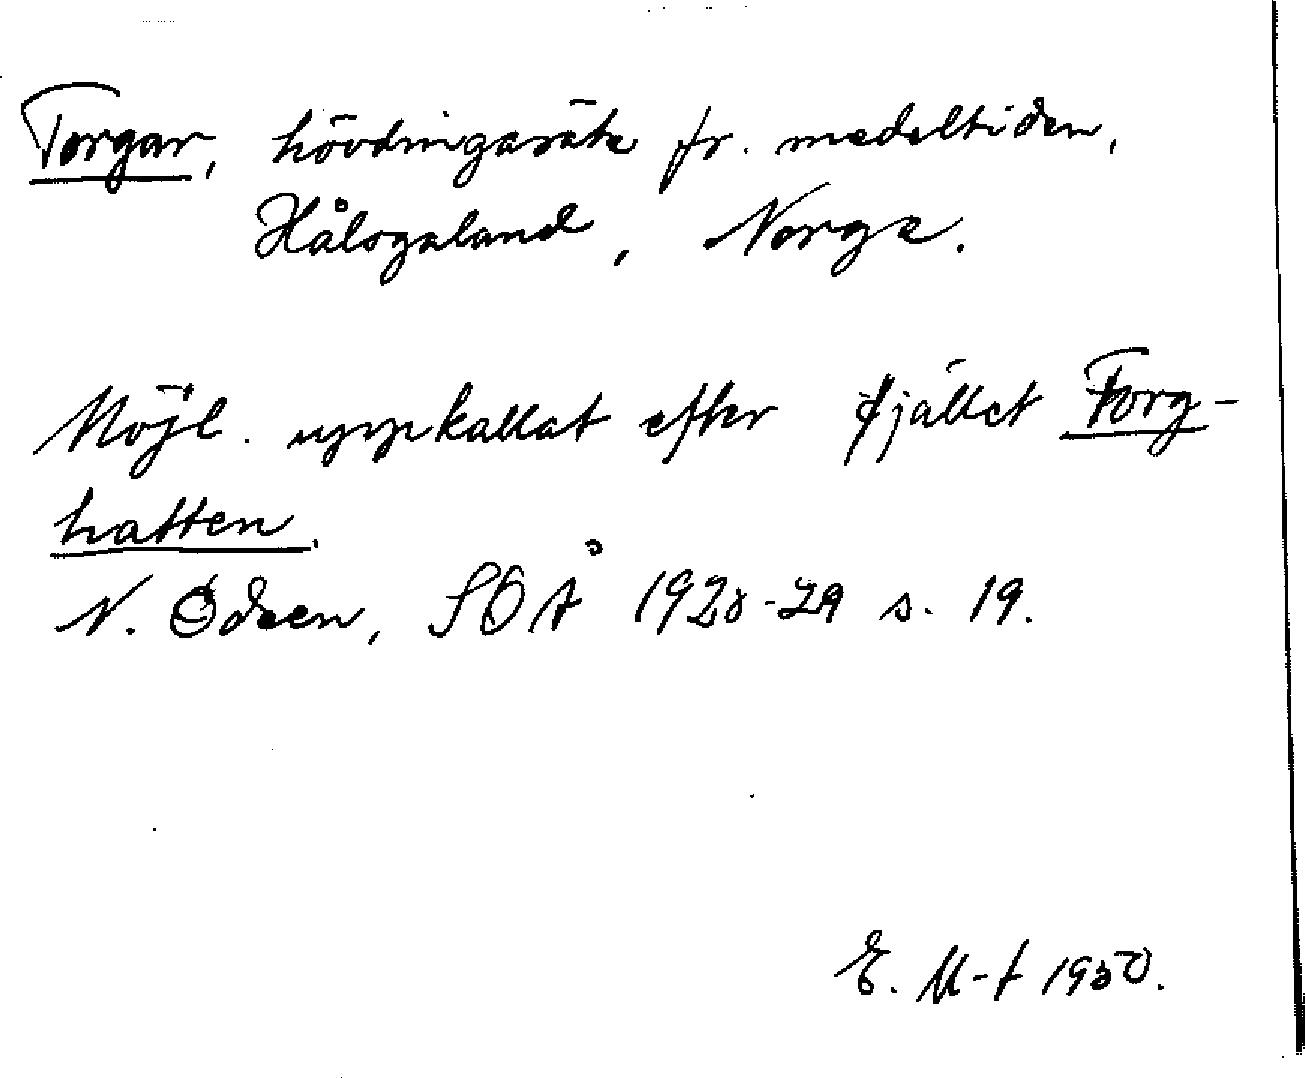 Torgar, hövdingasäte fr. medeltiden,
Hålogaland, Norge.
Möjl. uppkallat efter fjället Torg-
hatten.
N. Odeen, SOÅ 1928-29 s. 19.
E. M-t 1950.